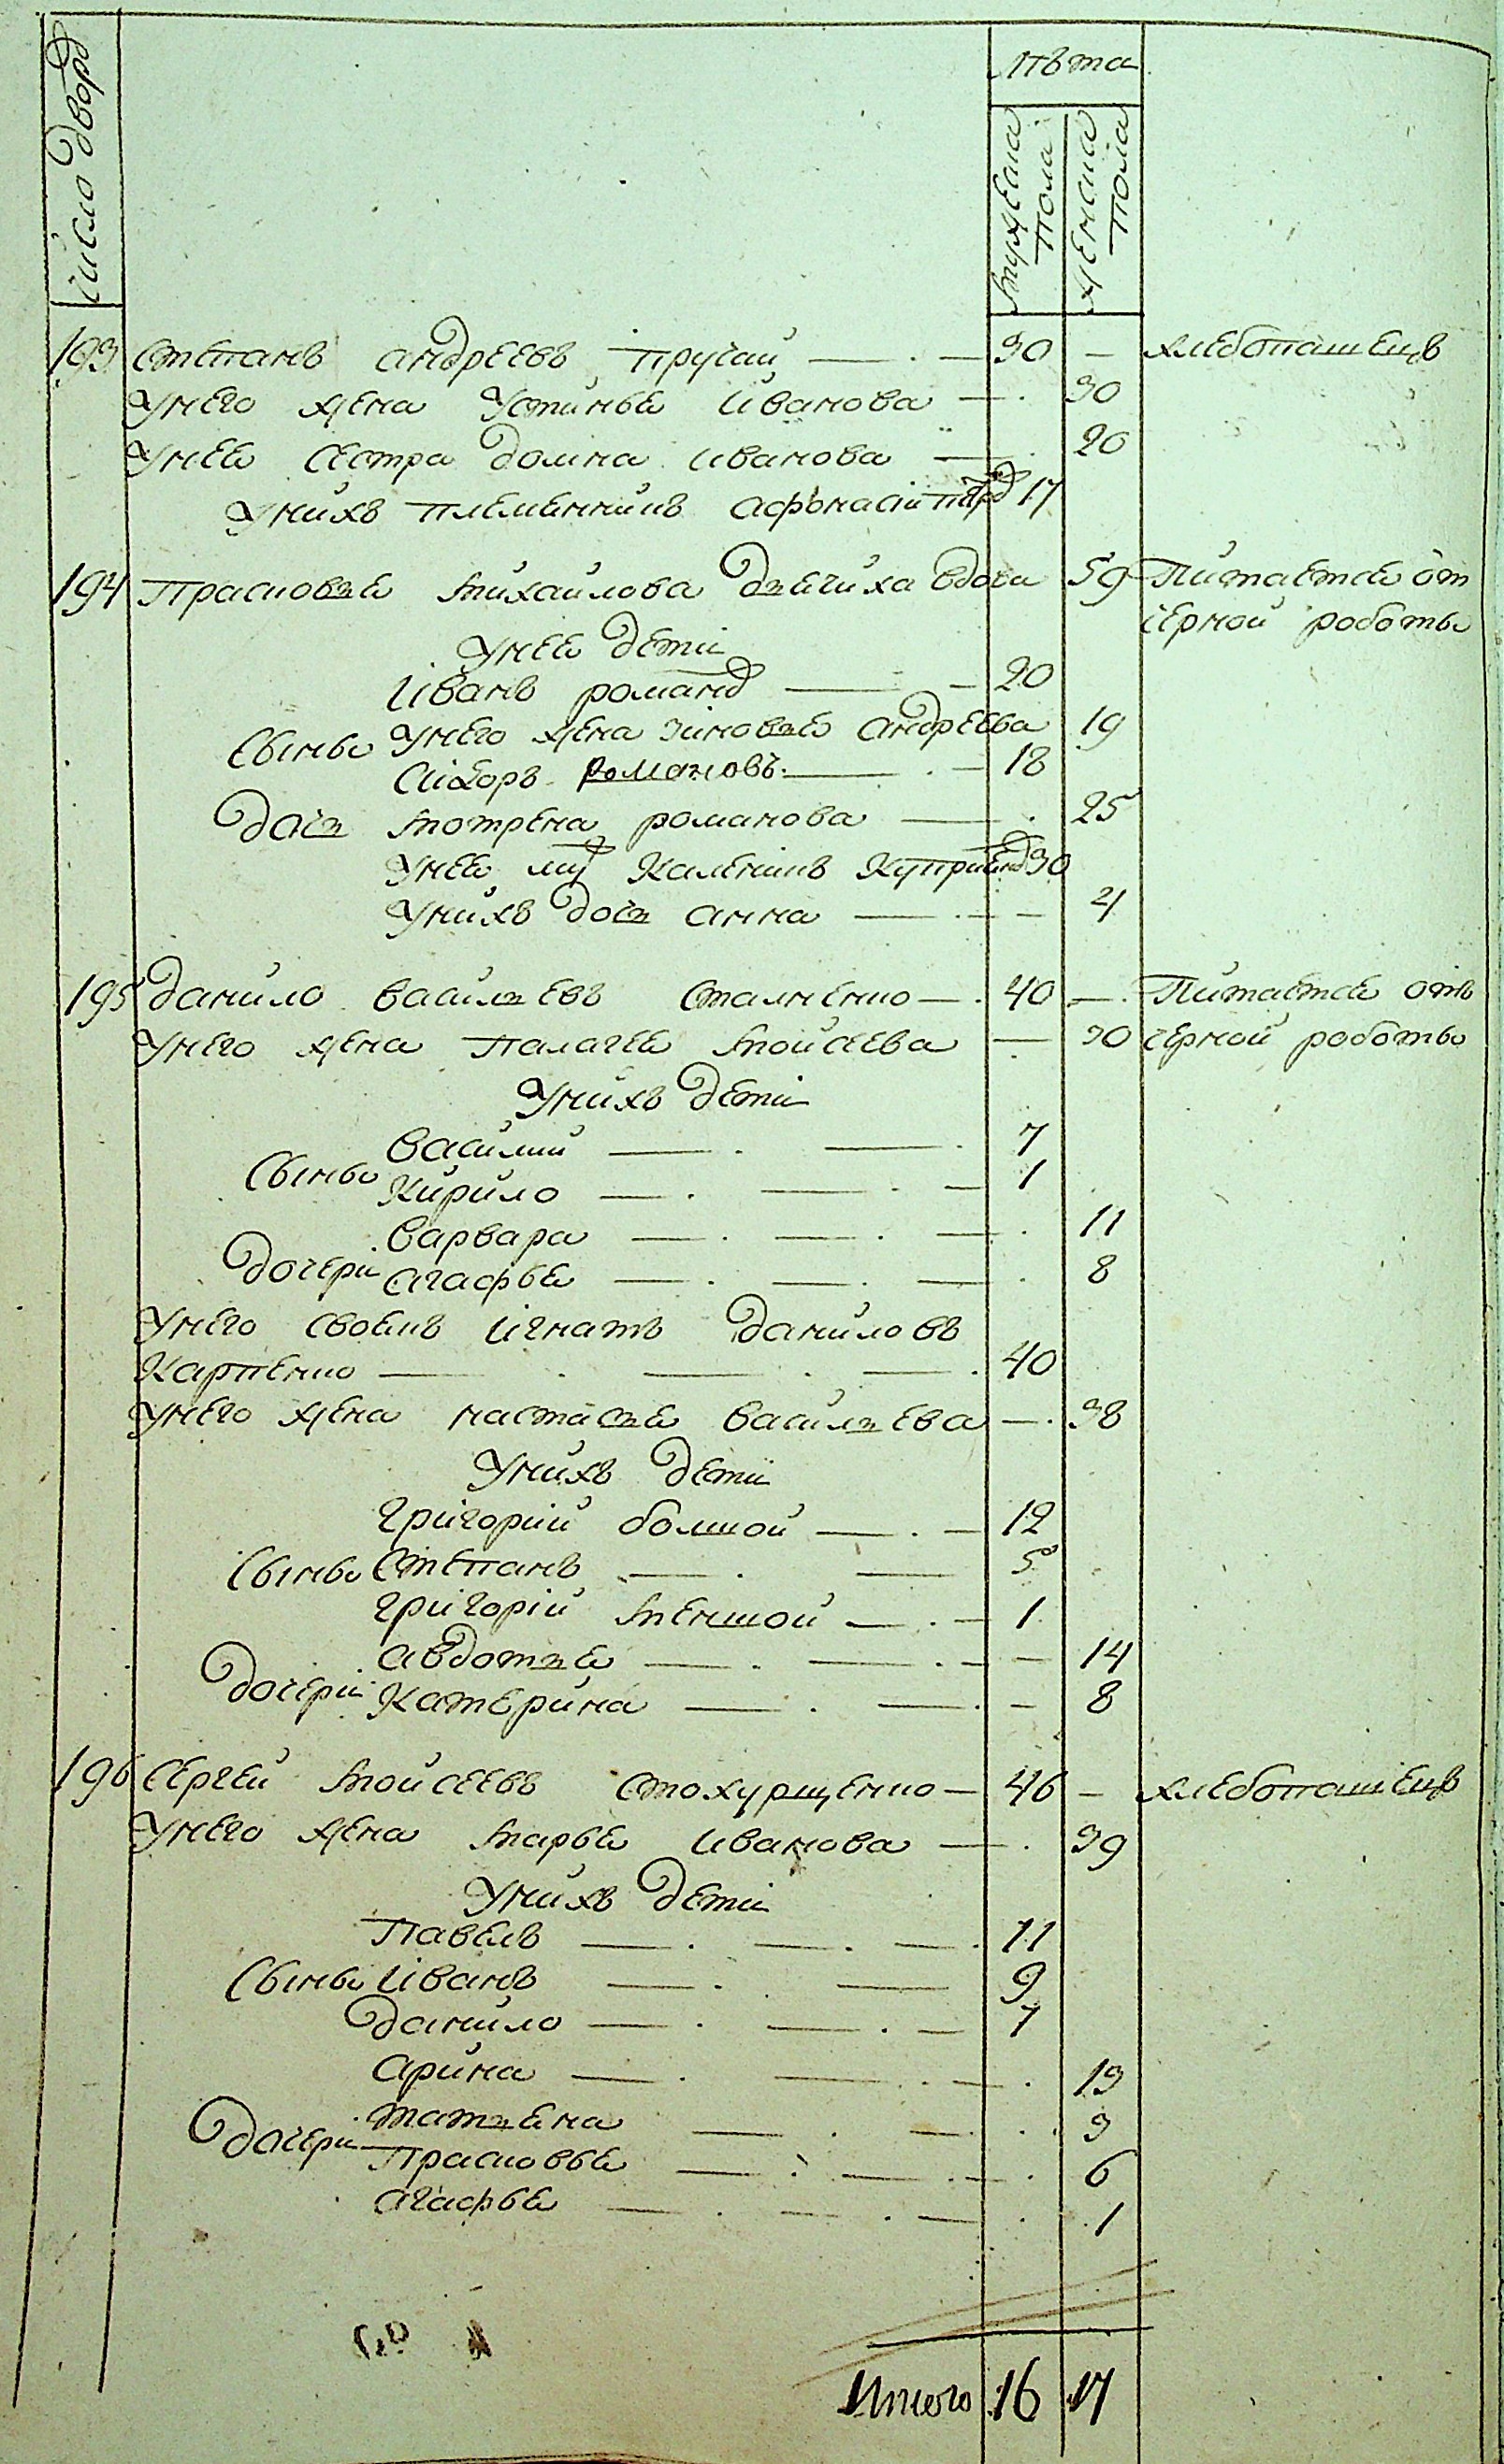 Число дворѡ
лѣта
мужеска пола
женска пола
193 Степанъ андреевъ пругай — 30 — хлебопашецъ
Унего жена Устинье Иванова — 30
Унее сестра домна иванова — 20
Унихъ племенникъ афонасіи петрѡ 17
194 Прасковье михаилова вдова 59 Питается от
черной роботы
Унее дети
Иванъ романѡ — 20
Сыны Унего жена зиновье андреева 19
Сидоръ Романовъ — 18
дочь мотрена романова — 25
Унее муж Каленикъ Куприенѡ 30
Унихъ дочь анна — 4
195 данило васильевъ Сталненко — 40 — Питается отъ
Унего жена Палагея мойсеева — 30 черной роботы
Унихъ дети
василий — 7
Сыны
Кирило — 1
варвара — 11
дочери агафье — 8
Унего своякъ Игнатъ даниловъ
Карпенко — 40
Унего жена настасье васильева — 38
Унихъ дети
григорий болшой — 12
Сыны Степанъ — 5
григорій меншой — 1
авдотье — 14
дочери Катерина — 8
196 Сергей мойсеевъ Стохурщенко — 46 — хлебопашецъ
Унего жена марье иванова — 39
Унихъ дети
Павелъ — 11
Сыны Иванъ — 9
данило — 7
арина — 13
татьена — 9
дочери Прасковье — 6
агафье — 1
Итого 16 17